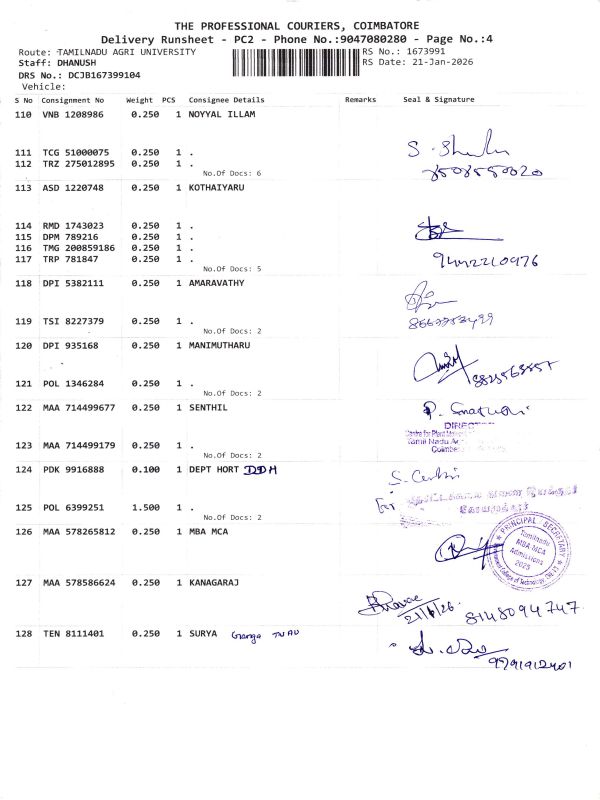 THE PROFESSIONAL COURIERS, COIMBATORE
Delivery Runsheet - PC2 - Phone No.:9047080280 - Page No.:4
Route: TAMILNADU AGRI UNIVERSITY RS No.: 1673991
Staff: DHANUSH RS Date: 21-Jan-2026
DRS No.: DCJB167399104
Vehicle:
S No Consignment No Weight PCS Consignee Details Remarks Seal & Signature
110 VNB 1208986 0.250 1 NOYYAL ILLAM
111 TCG 51000075 0.250 1 .
112 TRZ 275012895 0.250 1 .
No.Of Docs: 6
8508550020
113 ASD 1220748 0.250 1 KOTHAIYARU
114 RMD 1743023 0.250 1 .
115 DPM 789216 0.250 1 .
116 TMG 200859186 0.250 1 .
117 TRP 781847 0.250 1 .
No.Of Docs: 5
118 DPI 5382111 0.250 1 AMARAVATHY
119 TSI 8227379 0.250 1 .
No.Of Docs: 2
120 DPI 935168 0.250 1 MANIMUTHARU
121 POL 1346284 0.250 1 .
No.Of Docs: 2
122 MAA 714499677 0.250 1 SENTHIL
DIRECTOR
Centre for Plant
Tamil Nadu
123 MAA 714499179 0.250 1 .
No.Of Docs: 2
124 PDK 9916888 0.100 1 DEPT HORT DDH
For
125 POL 6399251 1.500 1 .
No.Of Docs: 2
126 MAA 578265812 0.250 1 MBA MCA
PRINCIPAL SECRETARY
Tamilnadu
MBA-MCA
Admissions
2025
127 MAA 578586624 0.250 1 KANAGARAJ
21/1/26 8148094747
128 TEN 8111401 0.250 1 SURYA Ganga TNAU
9791912401